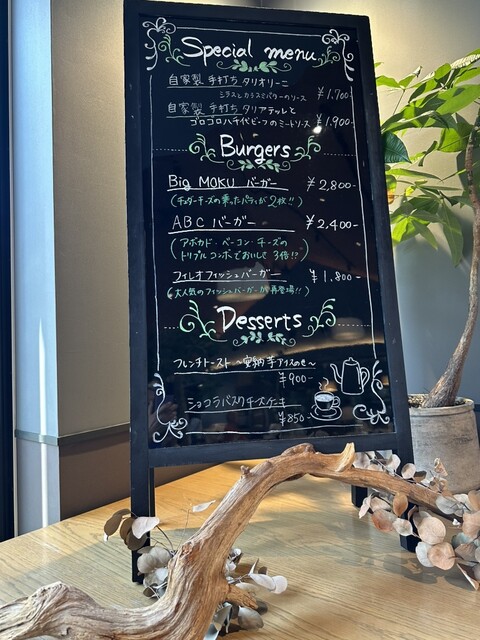 Special menu
自家製 手打ち タリオリーニ
シラスとカラスミバターのソース ¥1,700-
自家製 手打ち タリアテッレと
ゴロゴロハチ代ビーフのミートソース ¥1,900-
Burgers
Big MOKU バーガー ¥2,800-
(チェダーチーズの乗ったパティが2枚!!)
ABC バーガー ¥2,400-
(アボカド・ベーコン・チーズの
トリプルコンボでおいしさ3倍!?)
フィレオフィッシュバーガー ¥1,800-
(大人気のフィッシュバーガーが再登場!!)
Desserts
フレンチトースト 〜安納芋アイスのせ〜
¥900-
ショコラバスクチーズケーキ
¥850-